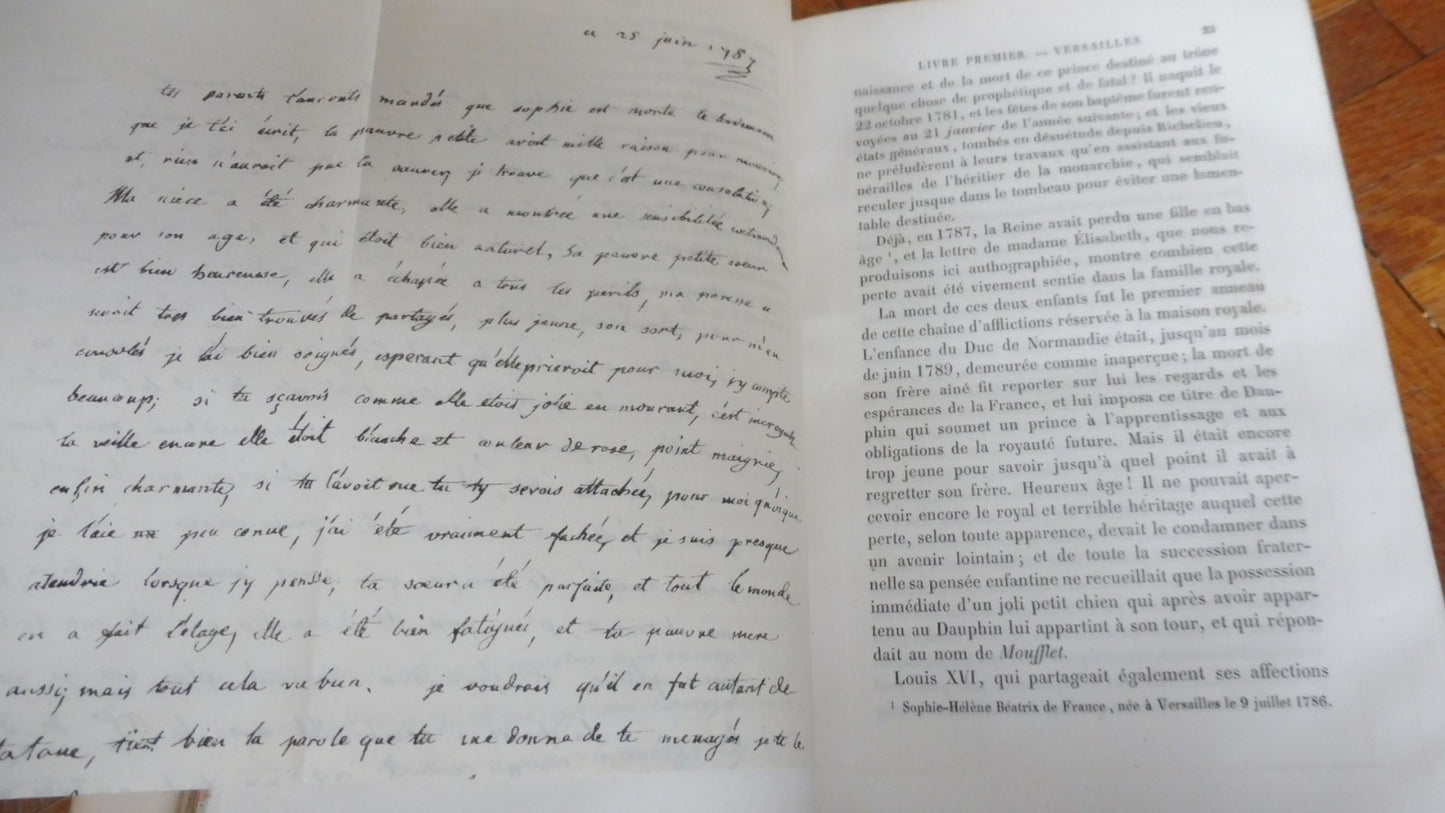 a 25 juin 1787
tes parents t'auronts mandés que sophie est morte le
que je t'ai écrit, la pauvre petite avoit mille raison pour mourire,
et, rien n'auroit pue la sauver, je trouve que c'est une consolation,
Ma niece a été charmante, elle a montrée une sensibilitée
pour son age, et qui étoit bien naturel, sa pauvre petite sœur
est bien heureuse, elle a échapée a tous les perils, ma paresse
seroit tres bien trouvés de partagés, plus jeune, son sort, pour m'en
consolés je l'ai bien soignés, esperant qu'elle prieroit pour moi, j'y compte
beaucoup; si tu sçavois comme elle étois jolie en mourant, c'est
la veille encore elle étoit blanche et couleur de rose, point maigrie,
enfin charmante, si tu l'avoit vue tu ty serois attachée, pour moi quoique
je l'aie peu conue, j'ai été vraiment fachée, et je suis presque
atendrie lorsque j'y pensse, ta sœur a été parfaite, et tout le monde
en a fait l'éloge, elle a été bien fatiguée, et ta pauvre mere
aussi, mais tout cela va bien. je voudrois qu'il en fut autant de
tatane, tient bien la parole que tu me donna de te menagés je te le
LIVRE PREMIER. — VERSAILLES.
naissance et de la mort de ce prince destiné au trône
quelque chose de prophétique et de fatal? Il naquit le
22 octobre 1781, et les fêtes de son baptême furent ren-
voyées au 21 janvier de l'année suivante; et les vieux
états généraux, tombés en désuétude depuis Richelieu,
ne préludèrent à leurs travaux qu'en assistant aux fu-
nérailles de l'héritier de la monarchie, qui semblait
reculer jusque dans le tombeau pour éviter une lamen-
table destinée.
Déjà, en 1787, la Reine avait perdu une fille en bas
âge ¹, et la lettre de madame Élisabeth, que nous re-
produisons ici authographiée, montre combien cette
perte avait été vivement sentie dans la famille royale.
La mort de ces deux enfants fut le premier anneau
de cette chaîne d'afflictions réservée à la maison royale.
L'enfance du Duc de Normandie était, jusqu'au mois
de juin 1789, demeurée comme inaperçue; la mort de
son frère aîné fit reporter sur lui les regards et les
espérances de la France, et lui imposa ce titre de Dau-
phin qui soumet un prince à l'apprentissage et aux
obligations de la royauté future. Mais il était encore
trop jeune pour savoir jusqu'à quel point il avait à
regretter son frère. Heureux âge! Il ne pouvait aper-
cevoir encore le royal et terrible héritage auquel cette
perte, selon toute apparence, devait le condamner dans
un avenir lointain; et de toute la succession frater-
nelle sa pensée enfantine ne recueillait que la possession
immédiate d'un joli petit chien qui après avoir appar-
tenu au Dauphin lui appartint à son tour, et qui répon-
dait au nom de Moufflet.
Louis XVI, qui partageait également ses affections
¹ Sophie-Hélène Béatrix de France, née à Versailles le 9 juillet 1786.